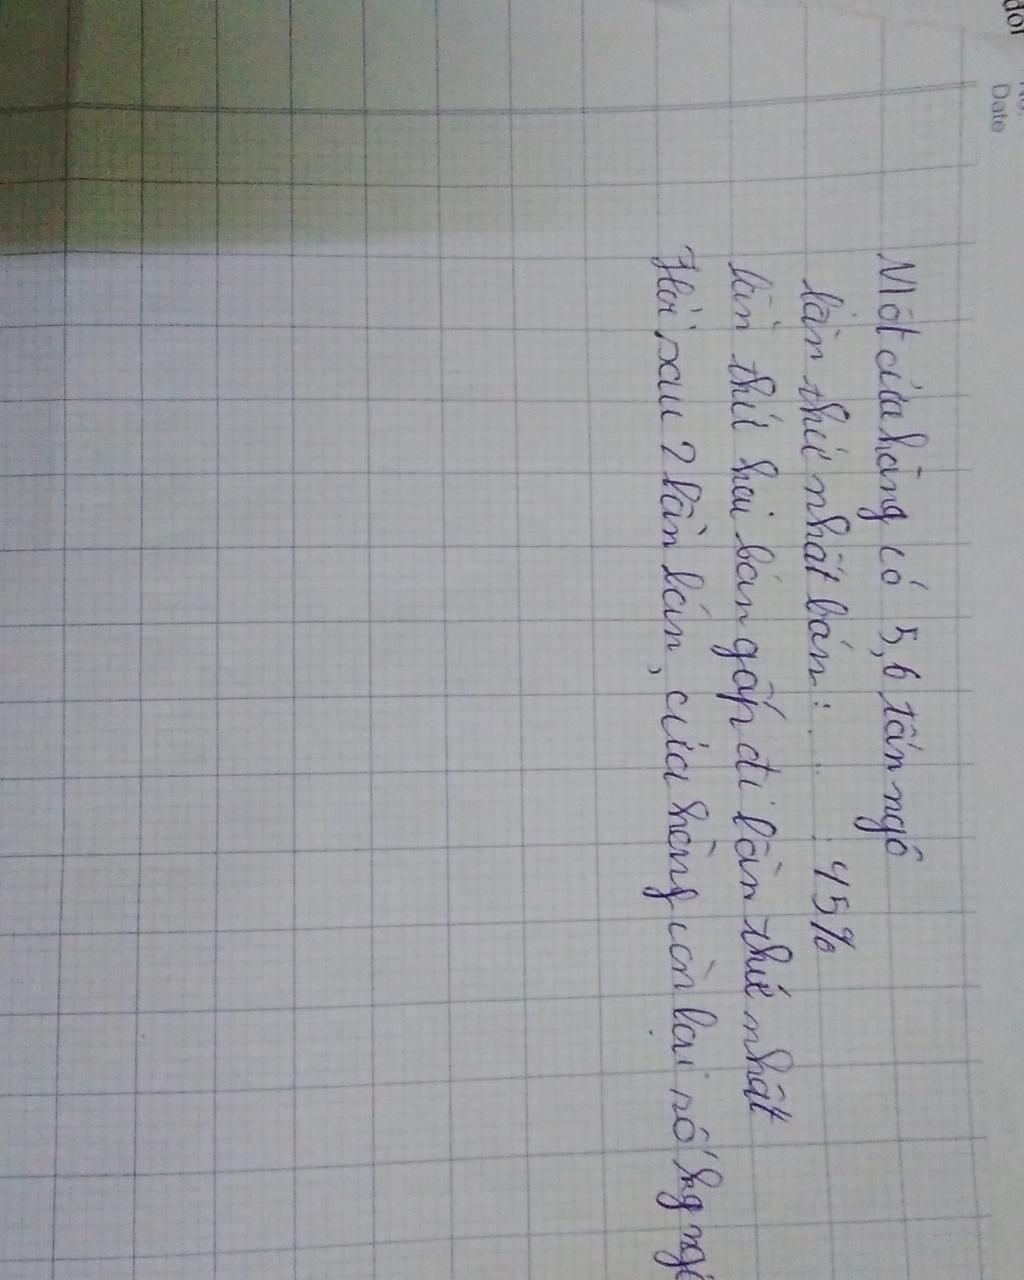 Date
Một cửa hàng có 5,6 tấn ngô
lần thứ nhất bán : . .. . 45%
lần thứ hai bán gấp đi lần thứ nhất
Hỏi sau 2 lần bán, cửa hàng còn lại số kg